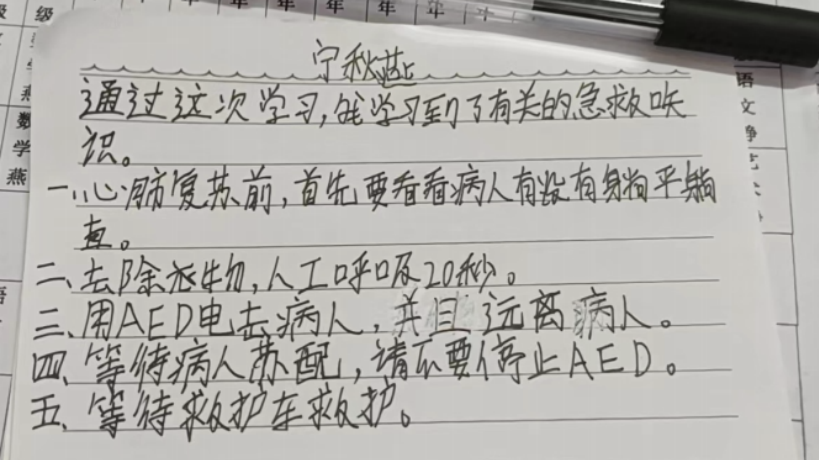 级 级 年 年 年 年 年
宁秋燕
通过这次学习,我学习到了有关的急救
识。
一、心肺复苏前,首先要看看病人有没有身躺平躺
直。
二、去除衣物,人工呼吸20秒。
三、用AED电击病人,并且远离病人。
四、等待病人苏配,请不要停止AED。
五、等待救护车救护。
数
学
燕
语
文
静